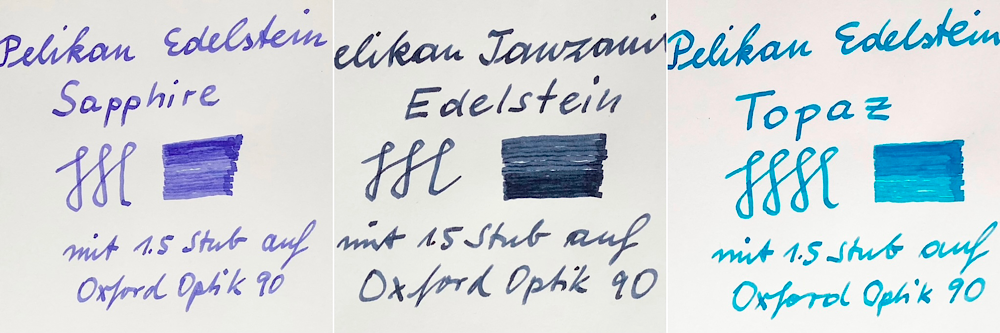 Pelikan Edelstein
Sapphire
mit 1.5 Stub auf
Oxford Optik 90
elikan Tanzani
Edelstein
mit 1.5 Stub auf
Oxford Optik 90
Pelikan Edelstein
Topaz
mit 1.5 Stub auf
Oxford Optik 90